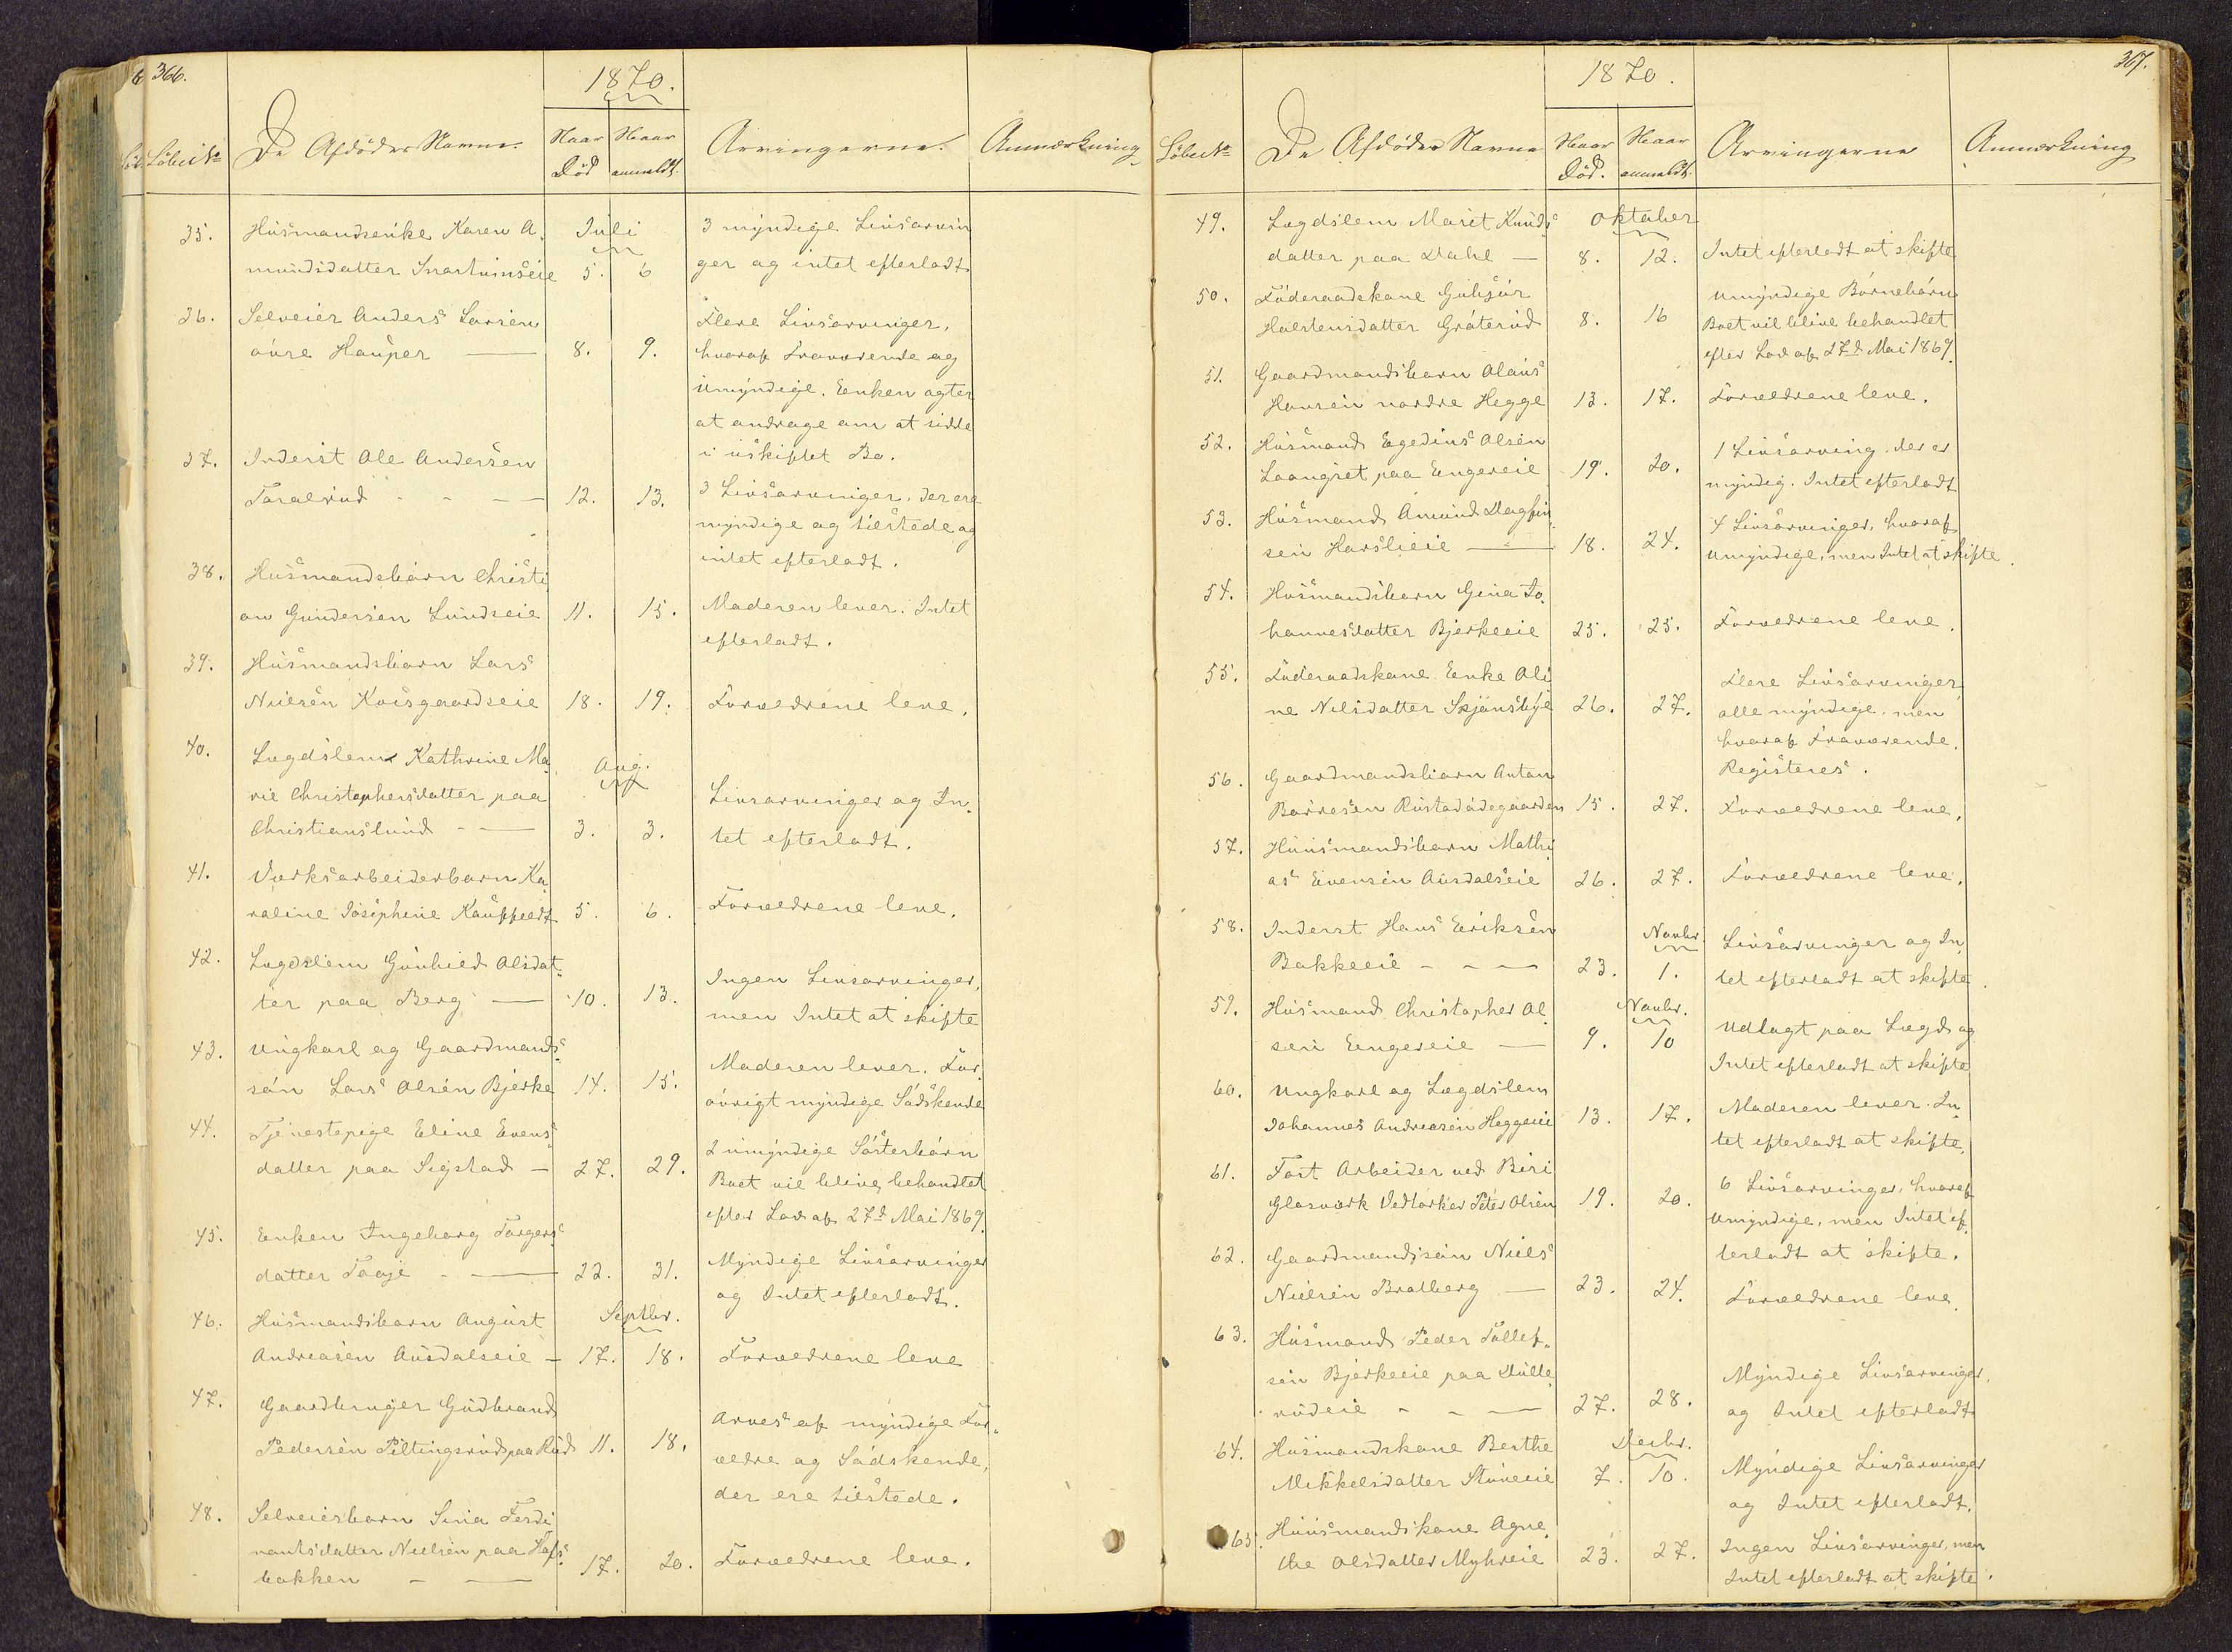 366.
1870.
Løbe No
De Afdødes Navne.
Naar Død
Naar anmeldt.
Arvingerne.
Anmærkning
35. Husmandsenke Karen A-
mundsdatter Snartumseie
Juli
5. 6
3 myndige Livsarvin
ger og intet efterladt
36. Selveier Anders Larsen
øvre Hasper — 8. 9.
Flere Livsarvinger,
hvoraf Fraværende og
Umyndige. Enken agter
at andrage om at sidde
i uskiftet Bo.
37. Inderst Ole Andersen
Taralrud - - — 12. 13.
3 Livsarvinger, der ere
myndige og tilstede og
intet efterladt.
38. Husmandsbarn Christi
an Gundersen Lundseie 11. 15.
Moderen lever. Intet
efterladt.
39. Husmandsbarn Lars
Nielsen Kvisgaardseie 18. 19.
Forældrene leve.
40. Lægdslem Kathrine Ma-
rie Christophersdatter paa
Christianslund - — 3. 3.
Aug.
Livsarvinger og In-
tet efterladt.
41. Værksarbeiderbarn Ka-
roline Josephine Kauffeldt 5. 6.
Forældrene leve.
42. Lægdslem Gunhild Olsdat-
ter paa Berg — 10. 13.
Ingen Livsarvinger,
men Intet at skifte
43. Ungkarl og Gaardmands-
søn Lars Olsen Bjerke 14. 15.
Moderen lever. For-
øvrigt myndige Sødskende
44. Tjenestepige Eline Evens-
datter paa Sigstad — 27. 29.
2 umyndige Søsterbørn
Boet vil blive behandlet
efter Lov af 27d Mai 1869.
45. Enken Ingeborg Torgers-
datter Taaje - — 22. 31.
Myndige Livsarvinger
og Intet efterladt.
46. Husmandsbarn August
Andreasen Ausdalseie — 17. 18.
Septbr.
Forældrene leve
47. Gaardbruger Gudbrand
Pedersen Piltingsrud paa Rud 11. 18.
Arves af myndige For-
ældre og Sødskende,
der ere tilstede.
48. Selveierbarn Sina Ferdi
nantsdatter Nielsen paa Hofs-
bakken - — 17. 20.
Forældrene leve.
367.
1870.
Løbe No
De Afdødes Navne
Naar Død.
Naar anmeldt.
Arvingerne
Anmærkning
49. Lægdslem Marit Knuds-
datter paa Dahl — 8. 12.
Oktober
Intet efterladt at skifte
50. Føderaadskone Guhjør
Halstensdatter Grøterud 8. 16
Umyndige Børnebørn
Boet vil blive behandlet
efter Lov af 27d Mai 1869.
51. Gaardmandsbarn Olaus
Hansen nordre Hegge 13. 17.
Forældrene leve.
52. Husmand Egedius Olsen
Laangset paa Engereie 19. 20.
1 Livsarving der er
myndig. Intet efterladt
53. Husmand Amund Dagfin-
sen Harslieie — 18. 24.
4 Livsarvinger, hvoraf
Umyndige, men Intet at skifte.
54. Husmandsbarn Gina Jo-
hannesdatter Bjerkeeie 25. 25.
Forældrene leve.
55. Føderaadskone Enke Oli
ne Nilsdatter Skjønsbye 26. 27.
Flere Livsarvinger,
alle myndige, men
hvoraf Fraværende.
Registeres.
56. Gaardmandsbarn Anton
Børresen Rustadødegaarden 15. 27.
Forældrene leve.
57. Huusmandsbarn Mathi
as Evensen Ausdalseie 26. 27.
Forældrene leve.
58. Inderst Hans Eriksen
Bakkeeie - - — 23. 1.
Novbr.
Livsarvinger og In-
tet efterladt at skifte.
59. Husmand Christopher Ol-
sen Engereie — 9. 10
Novbr.
Udlagt paa Lægd og
Intet efterladt at skifte
60. Ungkarl og Lægdslem
Johannes Andreasen Heggeeie 13. 17.
Moderen lever. In-
tet efterladt at skifte.
61. Fast Arbeider ved Biri
Glasværk Vedtørker Peter Olsen 19. 20.
6 Livsarvinger, hvoraf
Umyndige, men Intet ef-
terladt at skifte.
62. Gaardmandssøn Niels
Nielsen Bratberg — 23. 24.
Forældrene leve.
63. Husmand Peder Tollef-
sen Bjerkeeie paa Dulle-
rudeie - - — 27. 28.
Myndige Livsarvinger.
og Intet efterladt
64. Husmandskone Berthe
Mikkelsdatter Stuneeie 7. 10.
Decbr.
Myndige Livsarvinger
og Intet efterladt.
65. Huusmandskone Agne-
the Olsdatter Myhreie 23. 27.
Ingen Livsarvinger, men
Intet efterladt at skifte.